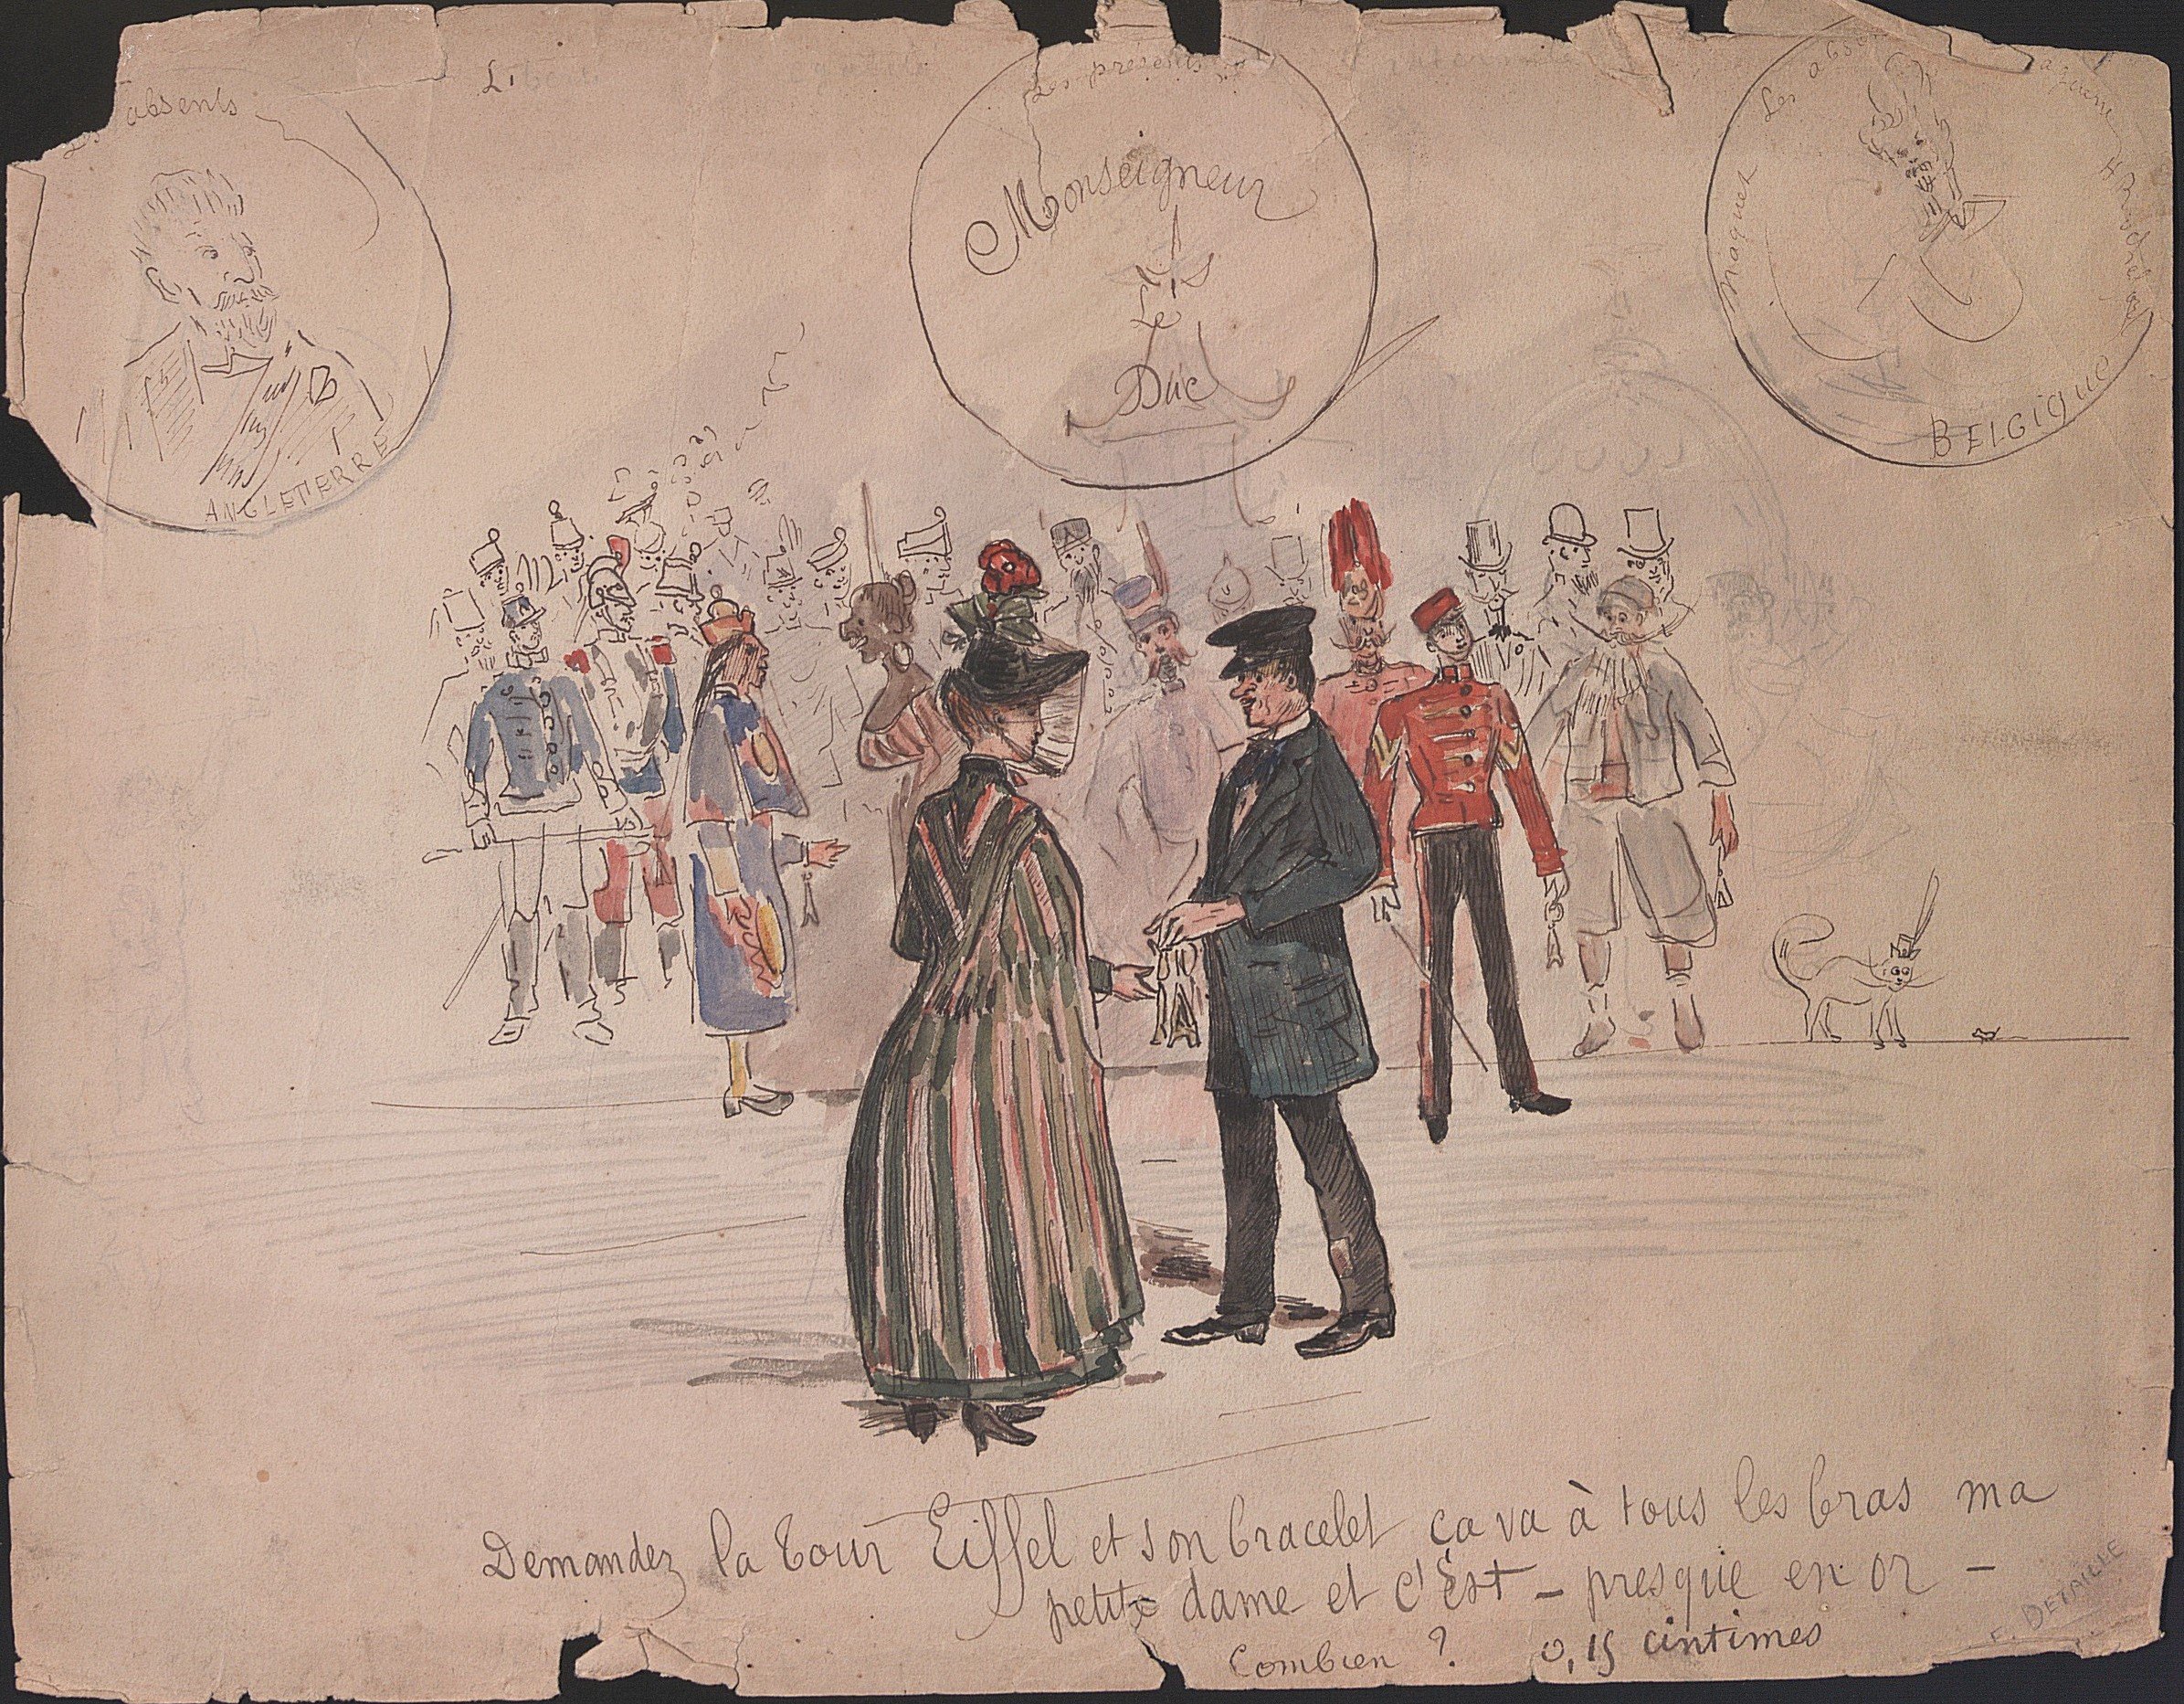 absents
ANGLETERRE
Les présents
Monseigneur
Le
Duc
Les abse
Maquet
BELGIQUE
Demandez la tour Eiffel et son bracelet ça va à tous les bras ma
petite dame et c'est – presque en or –
Combien ? 0,15 cintimes
E. DETAILLE